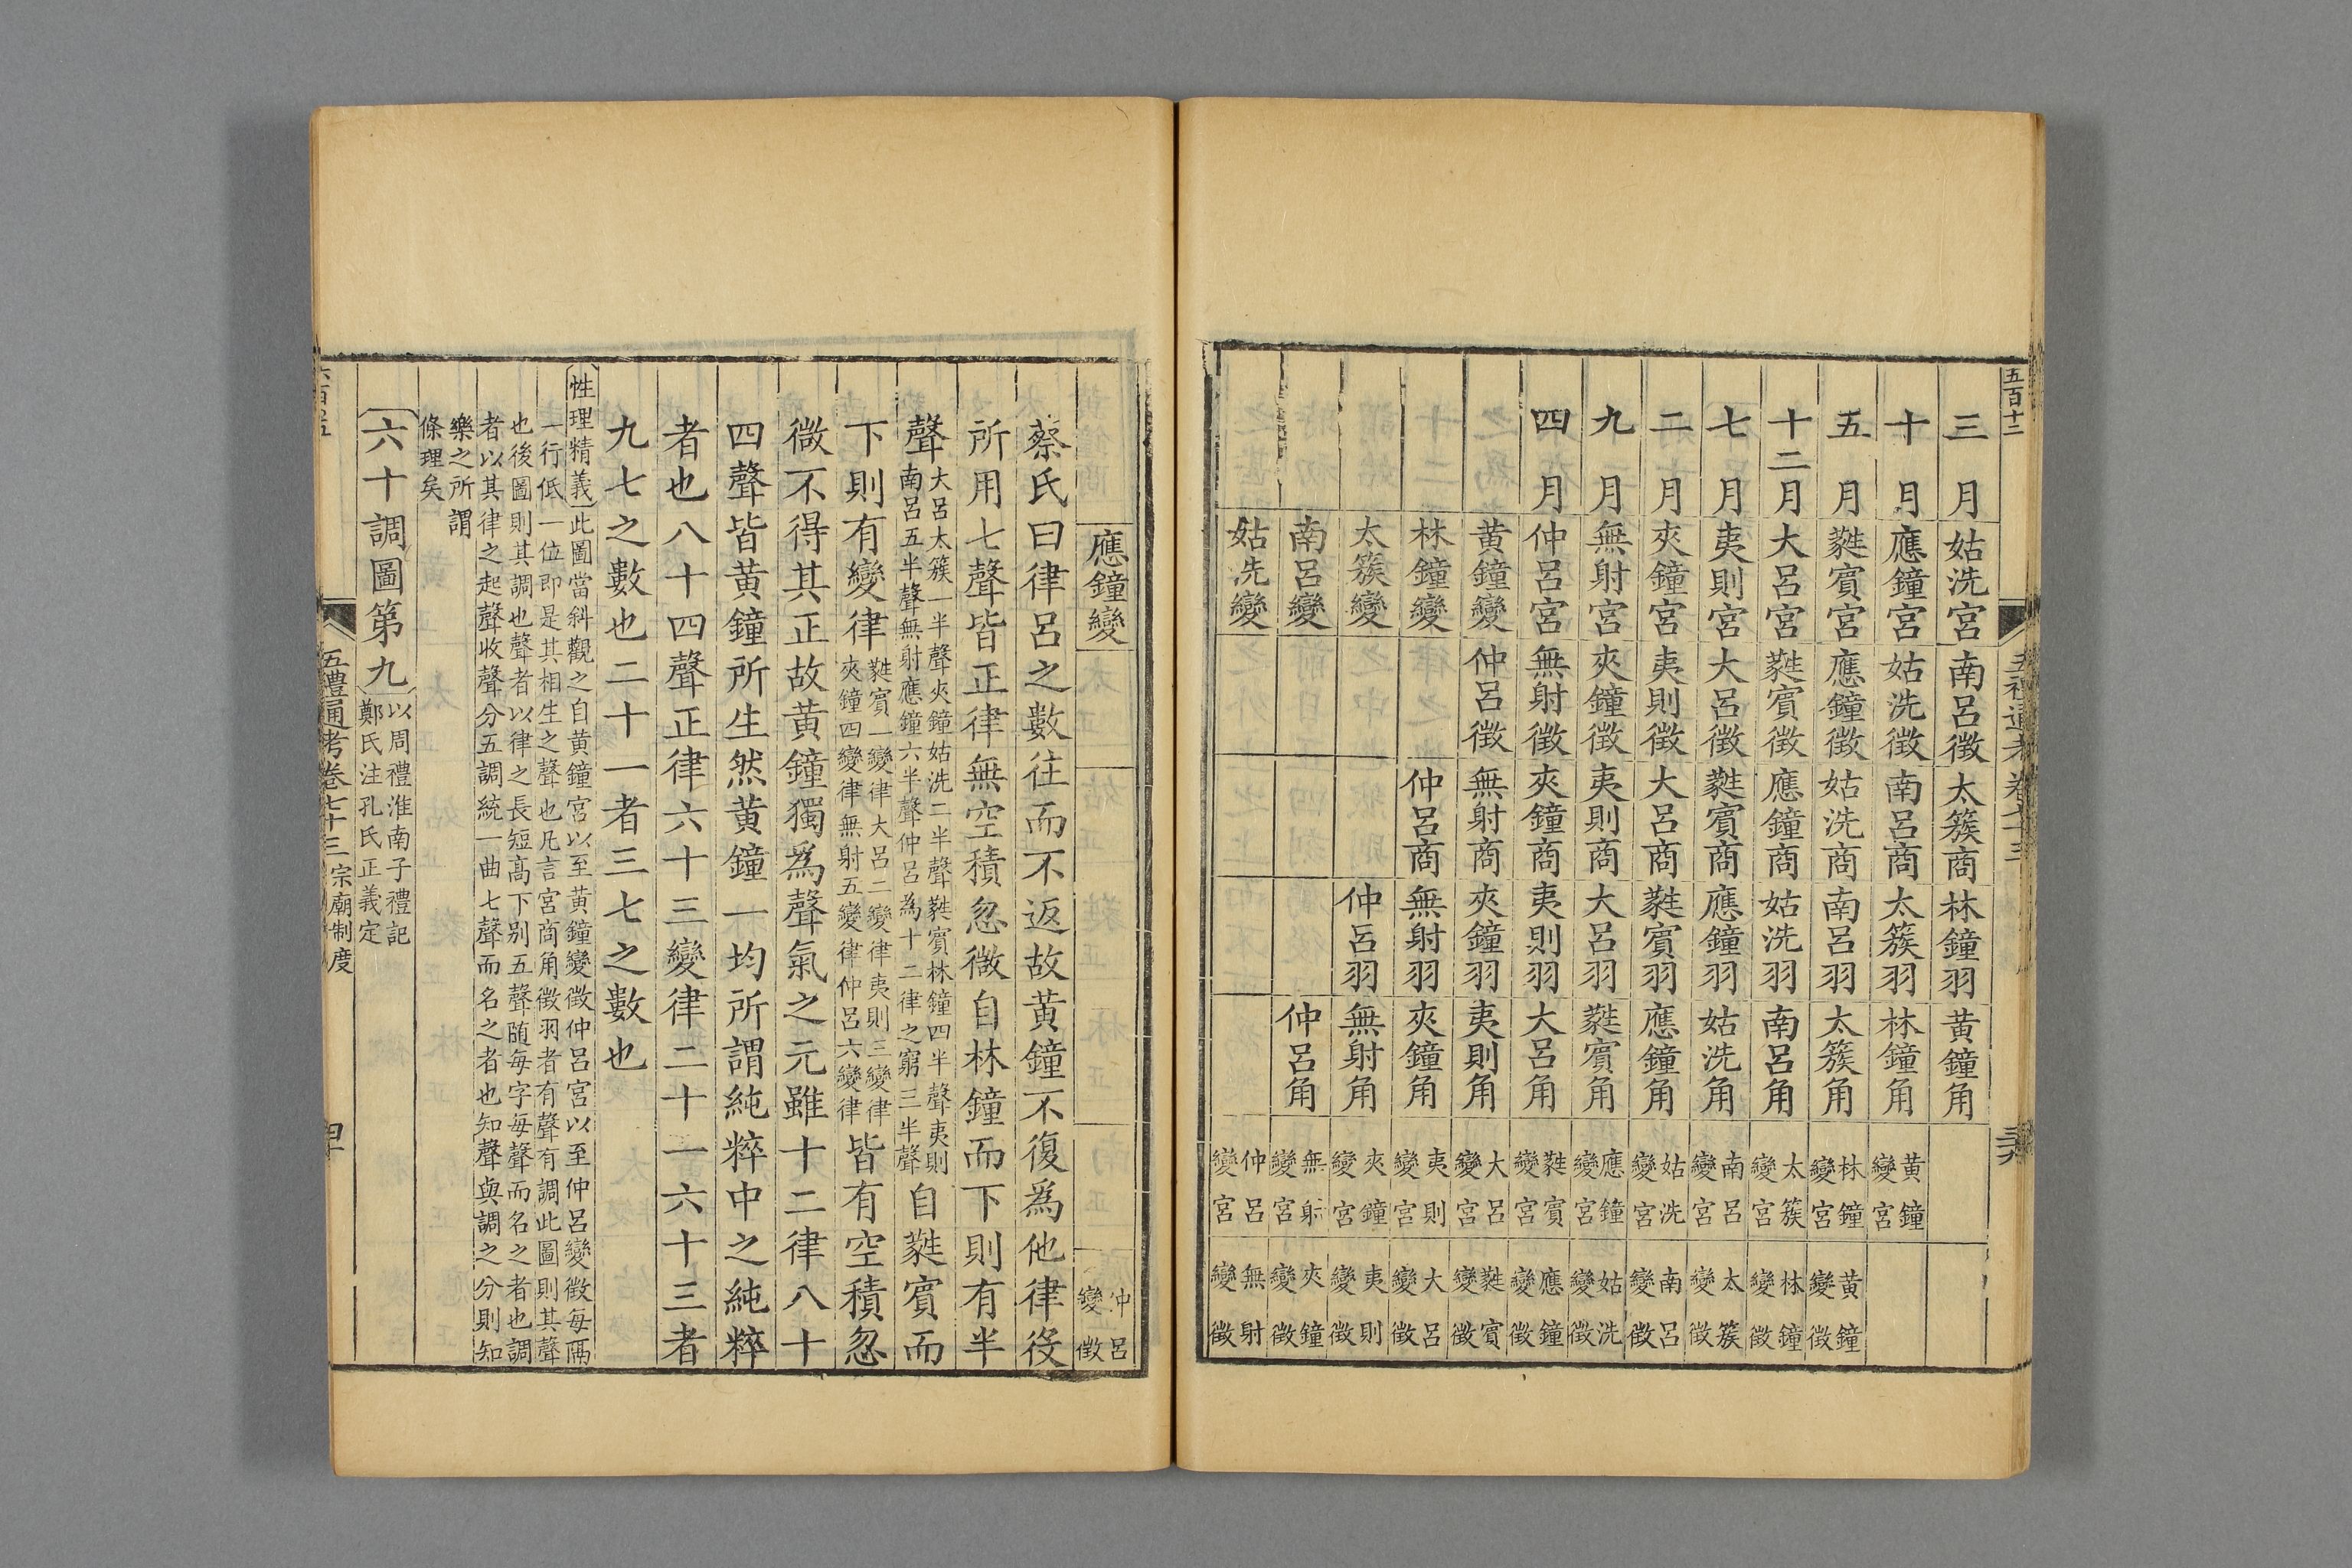 五百十二
三月姑洗宮南呂徵太簇商林鐘羽黃鐘角
十月應鐘宮姑洗徵南呂商太簇羽林鐘角黃鐘變宮
五月蕤賓宮應鐘徵姑洗商南呂羽太簇角林鐘變宮黃鐘變徵
十二月大呂宮蕤賓徵應鐘商姑洗羽南呂角太簇變宮林鐘變徵
七月夷則宮大呂徵蕤賓商應鐘羽姑洗角南呂變宮太簇變徵
二月夾鐘宮夷則徵大呂商蕤賓羽應鐘角姑洗變宮南呂變徵
九月無射宮夾鐘徵夷則商大呂羽蕤賓角應鐘變宮姑洗變徵
四月仲呂宮無射徵夾鐘商夷則羽大呂角蕤賓變宮應鐘變徵
黃鐘變仲呂徵無射商夾鐘羽夷則角大呂變宮蕤賓變徵
林鐘變仲呂商無射羽夾鐘角夷則變宮大呂變徵
太簇變仲呂羽無射角夾鐘變宮夷則變徵
南呂變仲呂角無射變宮夾鐘變徵
姑洗變仲呂變宮無射變徵
應鐘變仲呂變徵
蔡氏曰律呂之數往而不返故黃鐘不復爲他律役
所用七聲皆正律無空積忽微自林鐘而下則有半
聲大呂太簇一半聲夾鐘姑洗二半聲蕤賓林鐘四半聲夷則
南呂五半聲無射應鐘六半聲仲呂為十二律之窮三半聲自蕤賓而
下則有變律蕤賓一變律大呂二變律夷則三變律
夾鐘四變律無射五變律仲呂六變律皆有空積忽
微不得其正故黃鐘獨爲聲氣之元雖十二律八十
四聲皆黃鐘所生然黃鐘一均所謂純粹中之純粹
者也八十四聲正律六十三變律二十一六十三者
九七之數也二十一者三七之數也
性理精義此圖當斜觀之自黃鐘宮以至黃鐘變徵仲呂宮以至仲呂變徵每隔
一行低一位即是其相生之聲也凡言宮商角徵羽者有聲有調此圖則其聲
也後圖則其調也聲者以律之長短高下别五聲随每字每聲而名之者也調
者以其律之起聲收聲分五調統一曲七聲而名之者也知聲與調之分則知
樂之所謂
條理矣
六十調圖第九以周禮淮南子禮記
鄭氏注孔氏正義定
五禮通考卷七十三 宗廟制度